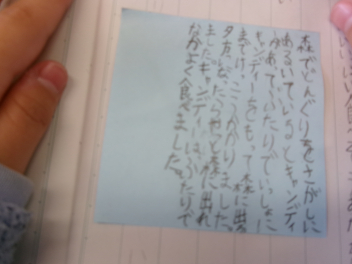 森でどんぐりをさがしに
あるいているとキャンディ
があっていたりでいっしょに
キャンディーをもって森に出る
までけっこうかかりました。
夕方になったらやっと森に出れ
ましたキャンディーはふたりで
なかよく食べました。